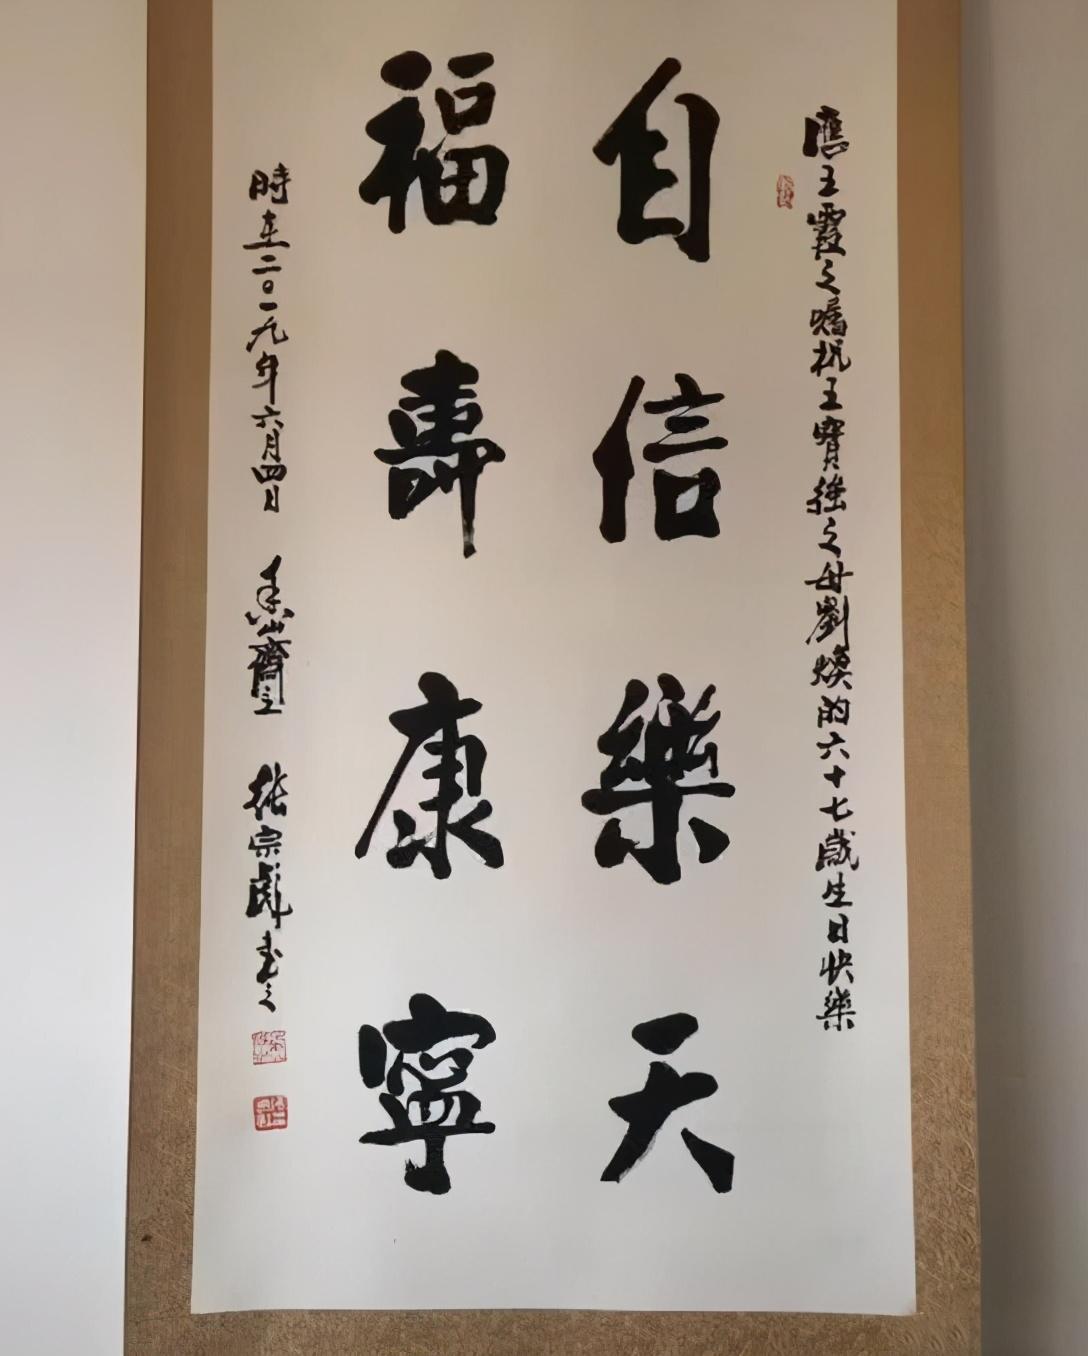 應王霞之囑祝王寶強之母劉煥的六十七歲生日快樂
自信樂天
福壽康寧
時在二〇一九年六月四日 香山齋主 張宗彪書之